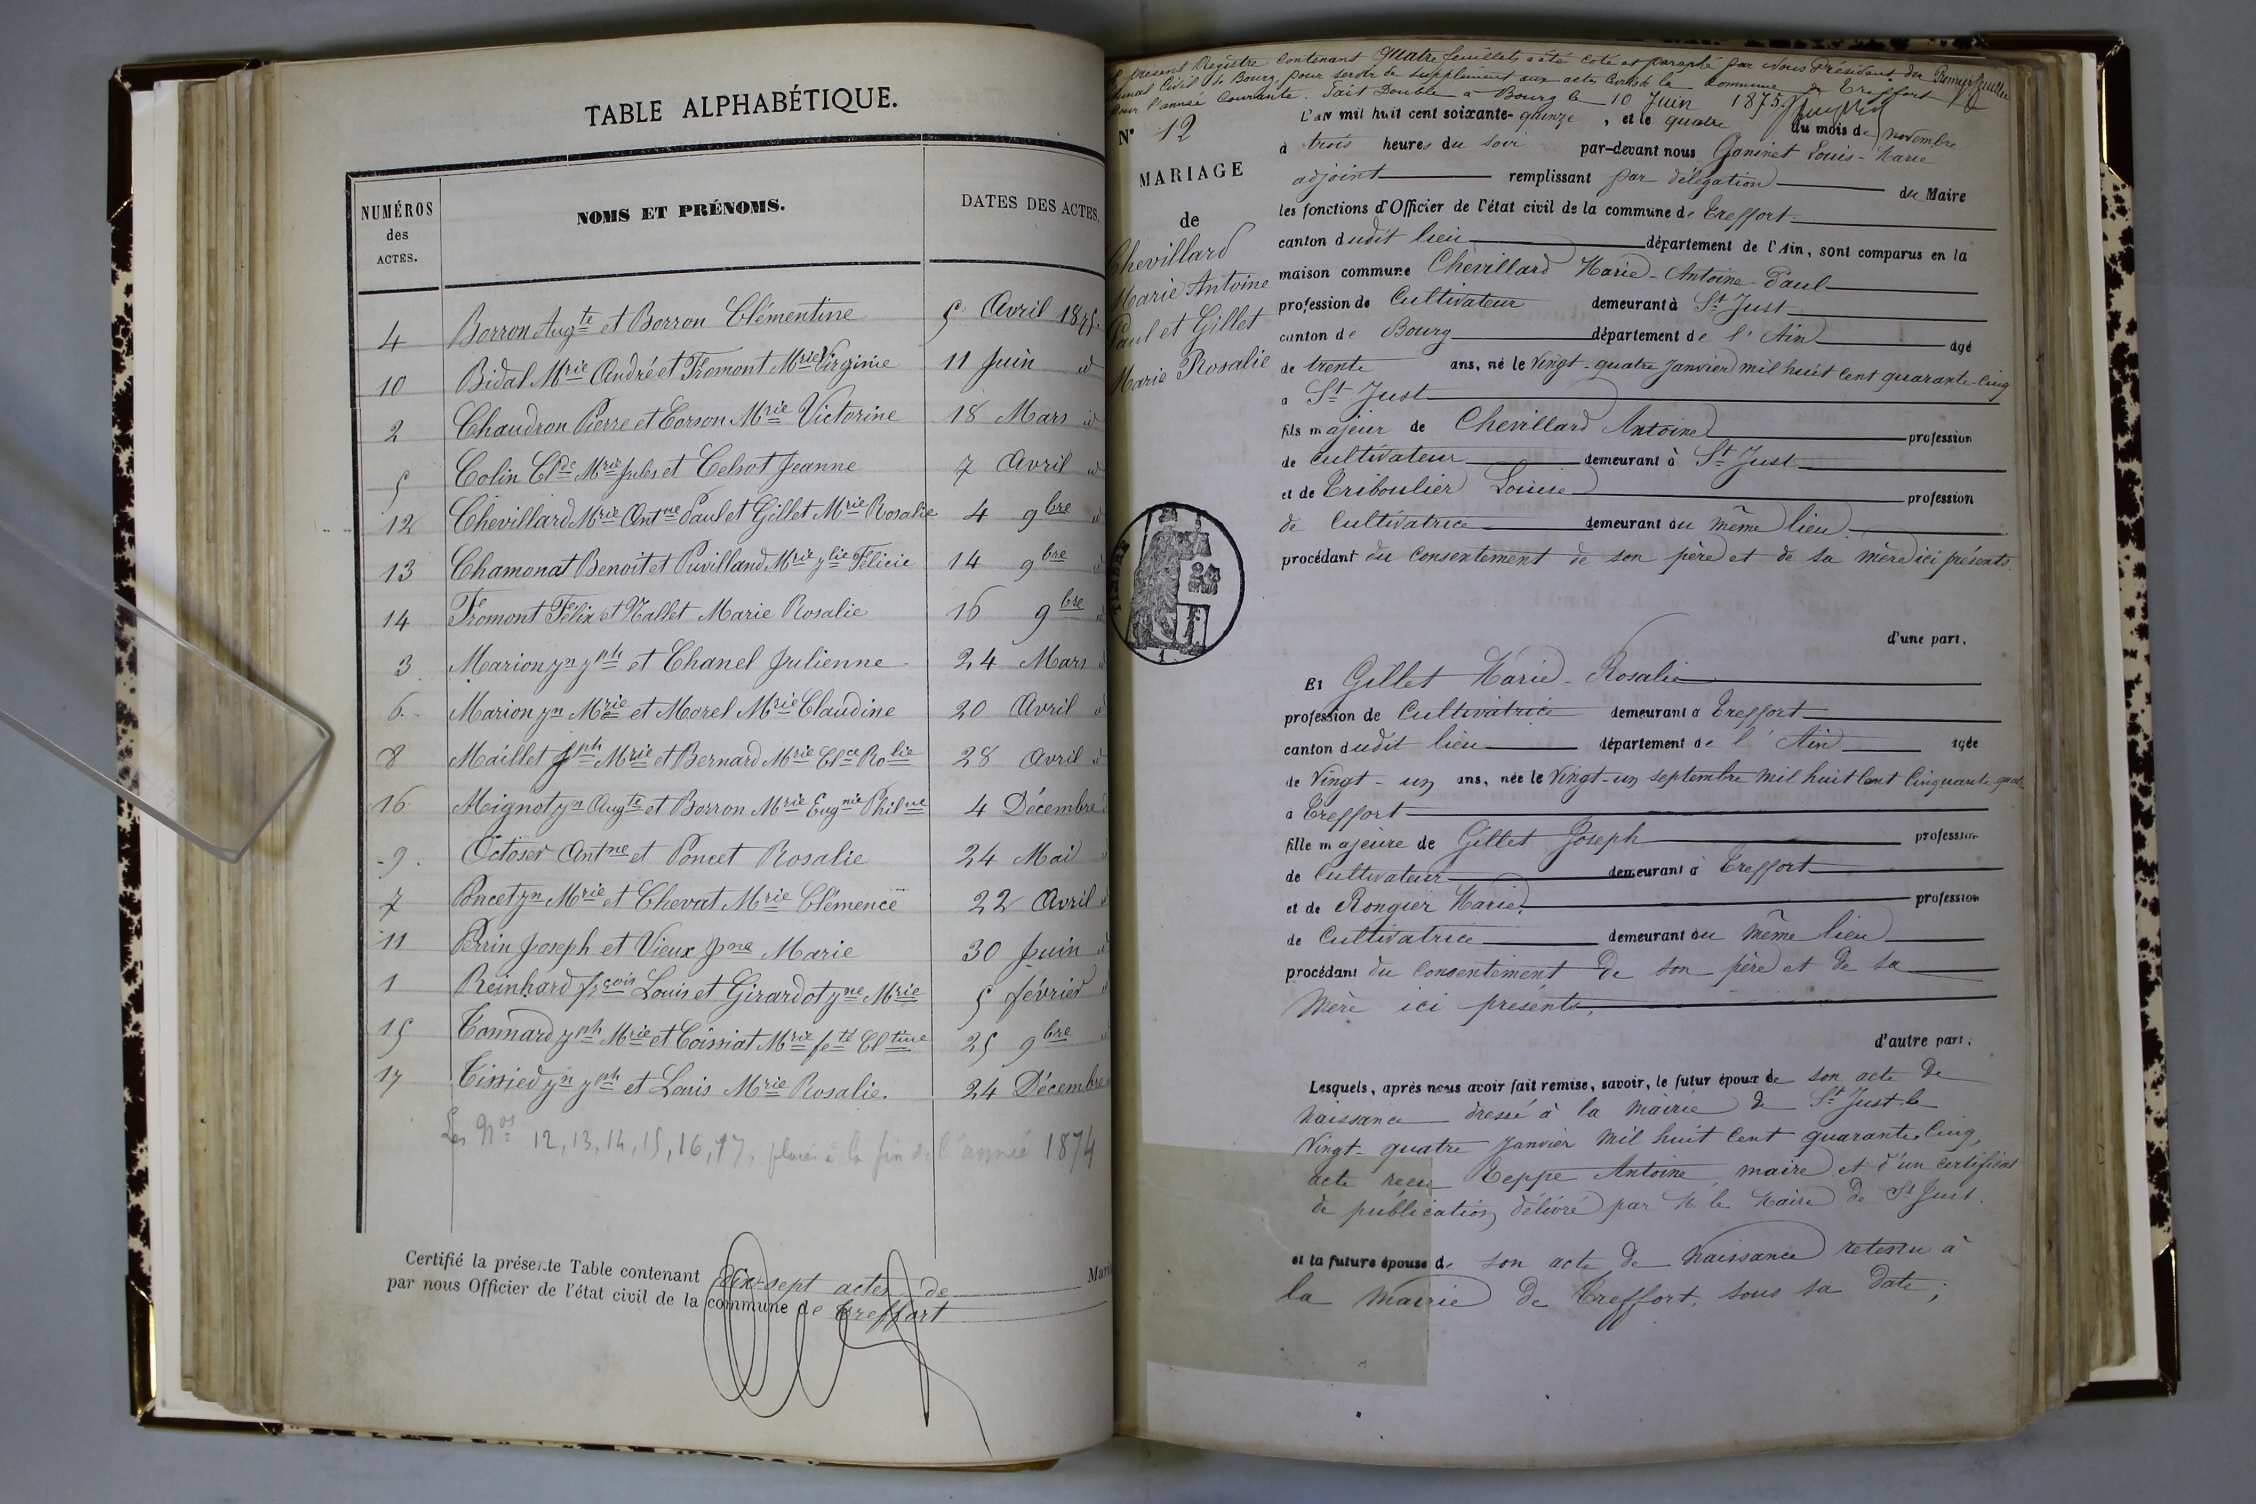 TABLE ALPHABÉTIQUE.
NUMÉROS des ACTES.
NOMS ET PRÉNOMS.
DATES DES ACTES.
4 Borron Augte et Borron Clémentine 5 Avril 1875.
10 Bidal Mrie André et Fromont Mrie Virginie 11 Juin id
2 Chaudron Pierre et Corson Mrie Victorine 18 Mars id
5 Colin Clde Mrie Jules et Celsot Jeanne 7 Avril id
12 Chevillard Mrie Antne Paul et Gillet Mrie Rosalie 4 9bre id
13 Chamonat Benoit et Puvilland Mrie Jlie Félicie 14 9bre
14 Fromont Félix et Nallet Marie Rosalie 16 9bre
3 Marion Jn Jph et Chanel Julienne 24 Mars
6. Marion Jn Mrie et Morel Mrie Claudine 20 Avril
8 Maillet Jph Mrie et Bernard Mrie Clce Rolie 28 Avril
16 Mignot Jn Augte et Borron Mrie Eugnie Philne 4 Décembre
9. Octoser Antne et Poncet Rosalie 24 Mai
7 Poncet Jn Mrie et Chevat Mrie Clémence 22 Avril
11 Perrin Joseph et Vieux Jne Marie 30 Juin
1 Reinhard fçois Louis et Girardot Jne Mrie 5 février
15 Connard Jph Mrie et Coissiat Mrie fete Cltine 25 9bre
17 Tissied Jn Jph et Louis Mrie Rosalie. 24 Décembre
Les Nos 12, 13, 14, 15, 16, 17, placés à la fin de l'année 1874
Certifié la présente Table contenant dix-sept actes de
par nous Officier de l'état civil de la commune de Treffort
présent Registre contenant quatre feuillets a été coté et paraphé par Nous Président du
Civil de Bourg, pour servir de supplément aux actes civils de la commune de Treffort
pour l'année courante. Fait Double à Bourg le 10 Juin 1875.
Premier feuillet
No 12
MARIAGE
de
Chevillard
Marie Antoine
Paul et Gillet
Marie Rosalie
TIMBRE
L'an mil huit cent soixante-quinze, et le quatre du mois de novembre
à trois heures du soir par-devant nous Janinet Louis-Marie
adjoint remplissant par délégation du Maire
les fonctions d'Officier de l'état civil de la commune de Treffort
canton dudit lieu département de l'Ain, sont comparus en la
maison commune Chevillard Marie-Antoine-Paul
profession de Cultivateur demeurant à St Just
canton de Bourg département de l'Ain agé
de trente ans, né le vingt-quatre Janvier mil huit cent quarante-cinq
a St Just
fils majeur de Chevillard Antoine profession
de cultivateur demeurant à St Just
et de Triboulier Louise profession
de Cultivatrice demeurant au même lieu
procédant du consentement de son père et de sa mère ici présents.
d'une part,
Et Gillet Marie-Rosalie
profession de Cultivatrice demeurant à Treffort
canton dudit lieu département de l'Ain agée
de vingt-un ans, née le vingt-un septembre mil huit cent cinquante-quatre
a Treffort
fille majeure de Gillet Joseph profession
de Cultivateur demeurant à Treffort
et de Rongier Marie profession
de Cultivatrice demeurant au même lieu
procédant du consentement de son père et de sa
mère ici présents,
d'autre part;
Lesquels, après nous avoir fait remise, savoir, le futur époux de son acte de
naissance dressé à la mairie de St Just le
vingt-quatre Janvier mil huit cent quarante cinq,
acte reçu Reppe Antoine, maire, et d'un certificat
de publication délivré par M. le Maire de St Just.
et la future épouse de son acte de naissance retenu à
la mairie de Treffort, sous sa date;